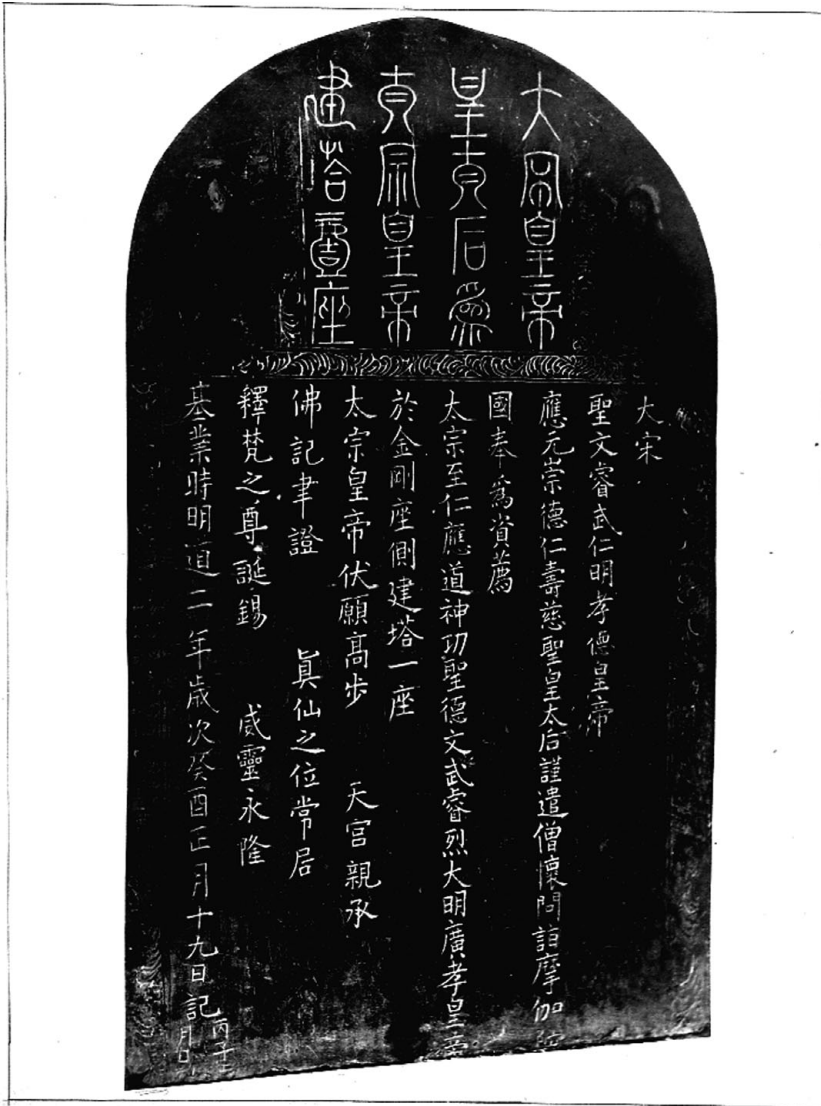 大宋皇帝
皇太后爲
太宗皇帝
建塔壹座
大宋
聖文睿武仁明孝德皇帝
應元崇德仁壽慈聖皇太后謹遣僧懷問詣摩伽陁
國奉爲資薦
太宗至仁應道神功聖德文武睿烈大明廣孝皇帝
於金剛座側建塔一座
太宗皇帝伏願高步 天宮親承
佛記聿證 眞仙之位常居
釋梵之尊誕錫 威靈永隆
基業時明道二年歲次癸酉正月十九日記